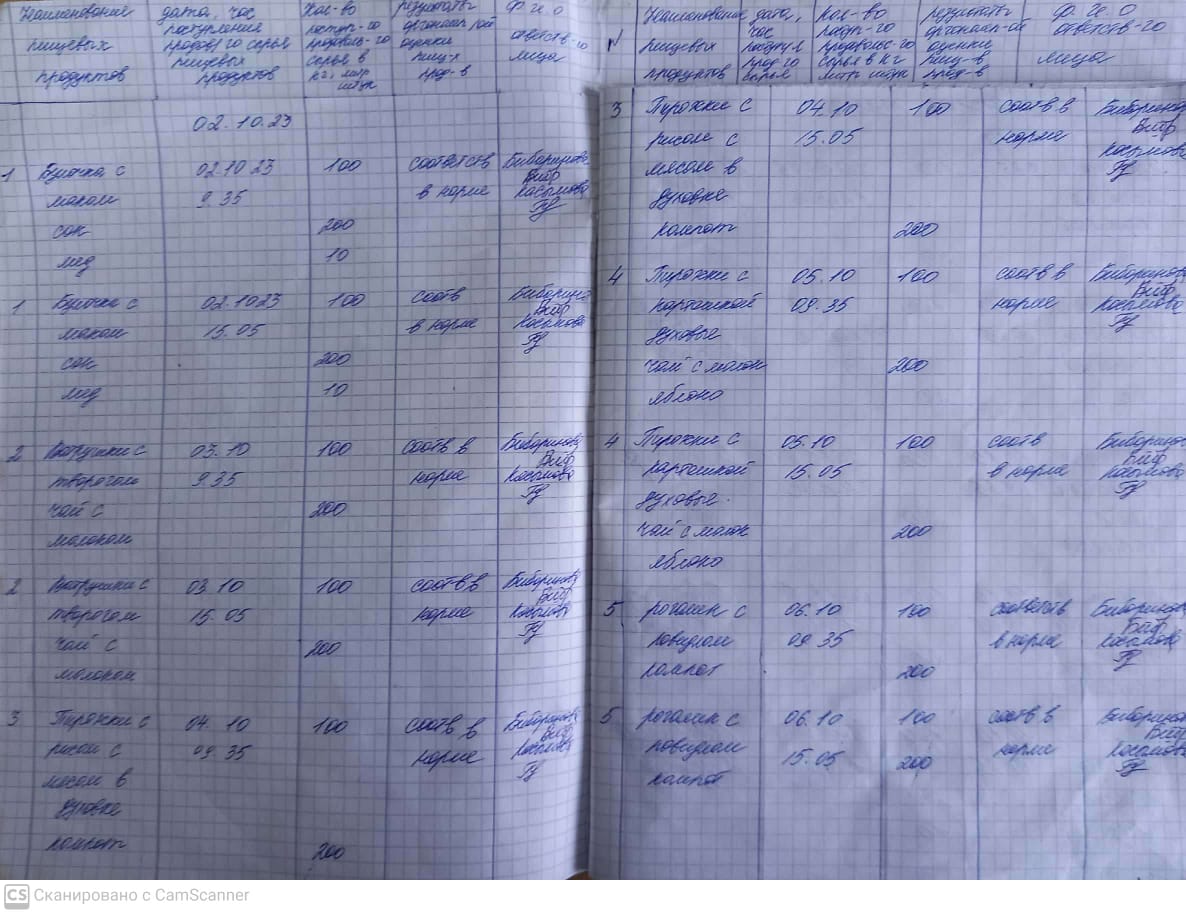 Наименование дата, час Кол-во результаты Ф.И.О
поступления поступ-го органолептой
пищевых продов/го сырья продоволь-го оценки ответств-го
пищевых сырья в пищ-х лица
продуктов продуктов кг, литр прод-в
штук
02.10.23
1 Булочка с 02.10 23 100 соответств Бибаринова
маком 9.35 в норме Косымова
сок 200
мед 10
1 Булочка с 02.10 23 100 соотв Бибаринова
маком 15.05 в норме Косымова
сок 200
мед 10
2 Ватрушки с 03.10 100 соотв в Бибаринова
творогом 9.35 норме Косымова
чай с 200
молоком
2 Ватрушки с 03.10 100 соотв в Бибаринова
творогом 15.05 норме Косымова
чай с 200
молоком
3 Пирожки с 04.10 100 соотв в Бибаринова
рисом с 09.35 норме Косымова
мясом в
духовке
компот 200
Наименование дата, Кол-во результаты Ф.И.О
час поступ-го органолеп-ой ответств-го
№ пищевых поступл продовольс-го оценки
прод-го сырья в кг пищ-в лица
продуктов сырья литр штук прод-в
3 Пирожки с 04.10 100 соотв в Бибаринова
рисом с 15.05 норме
мясом в Косымова
духовке
компот 200
4 Пирожки с 05.10 100 соотв в Бибаринова
картошкой 09.35 норме Косымова
духовые
чай с молок 200
яблоко
4 Пирожки с 05.10 100 соотв Бибаринова
картошкой 15.05 в норме Косымова
духовые.
чай с молок 200
яблоко
5 рогалик с 06.10 100 соответств Бибаринова
повидлом 09 35 в норме Косымова
компот 200
5 рогалик с 06.10 100 соотв в Бибаринова
повидлом 15.05 200 норме Косымова
компот
CS Сканировано с CamScanner